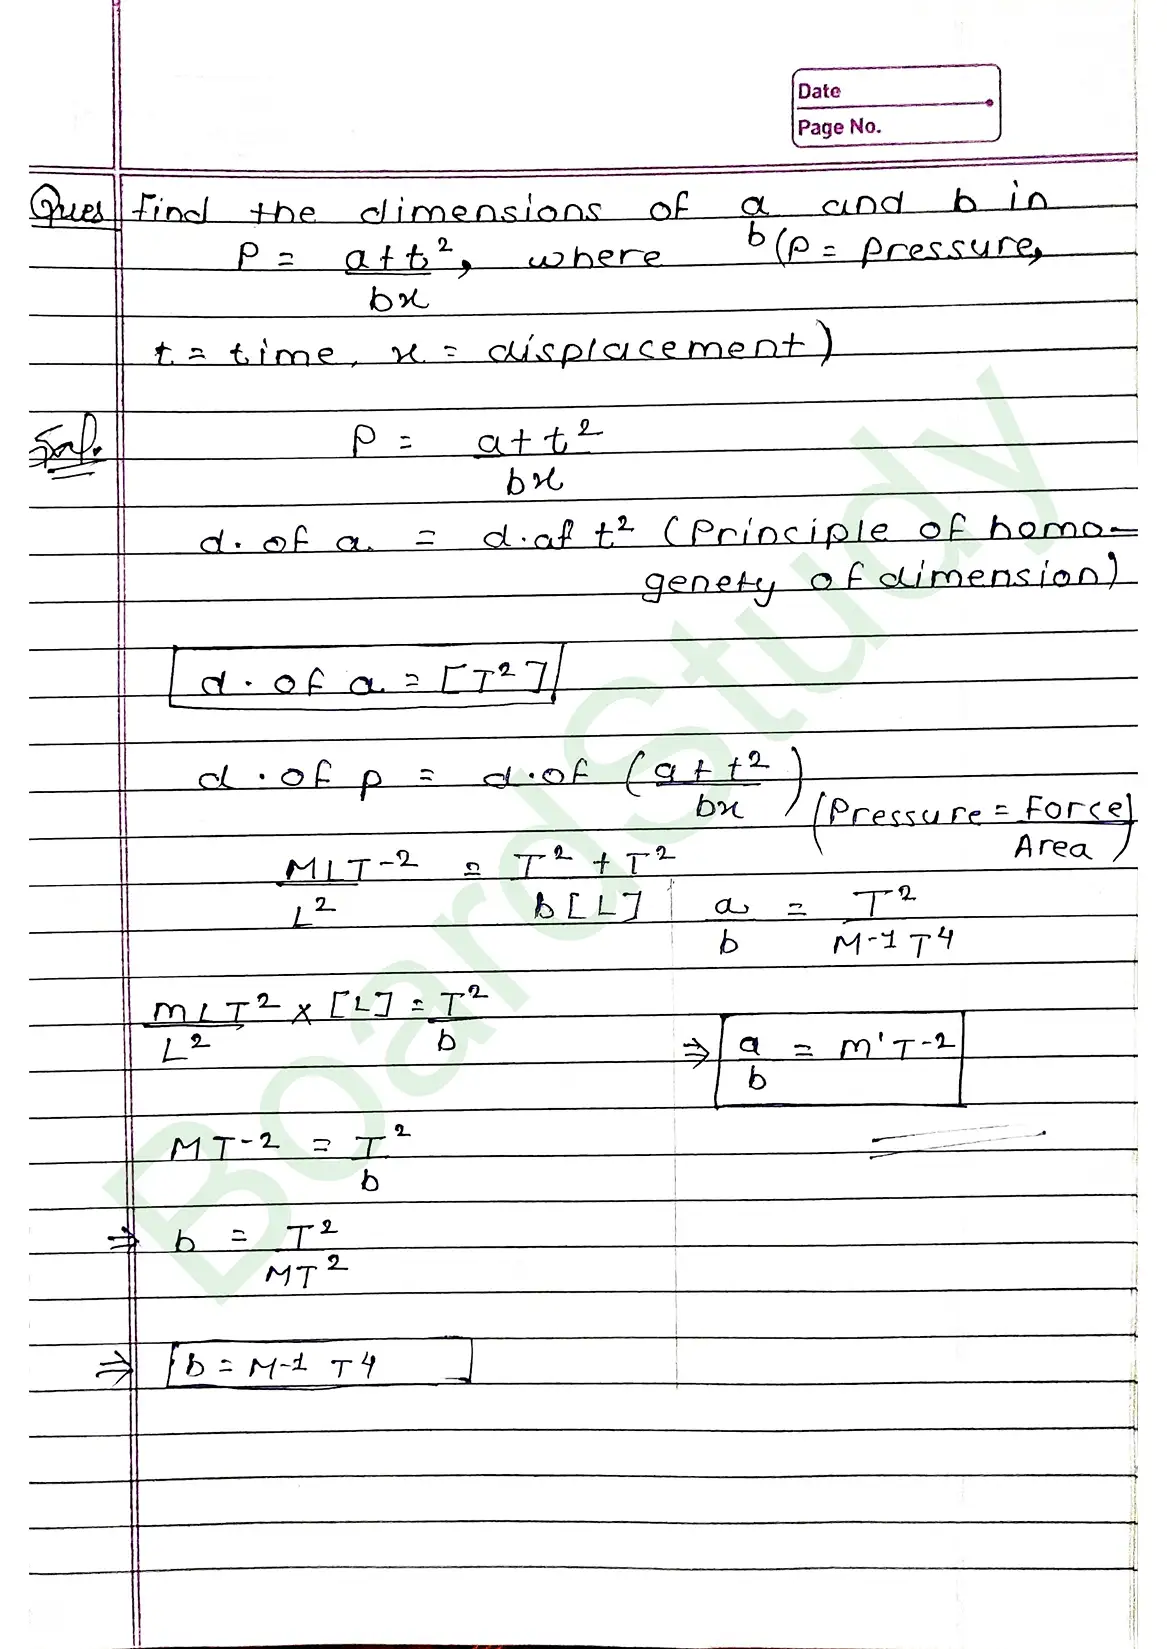 Date
Page No.
Ques Find the dimensions of a/b and b in
P = a+t²/bx, where (P = pressure,
t = time, x = displacement)
Sol. P = a+t²/bx
d. of a = d. of t² (Principle of homo-
genety of dimension)
d. of a = [T²]
d. of p = d. of (a+t²/bx) (Pressure = Force/Area)
MLT-2/L² = T²+T²/b[L]
a/b = T²/M-1 T4
MLT²/L² × [L] = T²/b
⇒ a/b = M'T-2
MT-2 = T²/b
⇒ b = T²/MT²
⇒ b = M-1 T4
BoardStudy